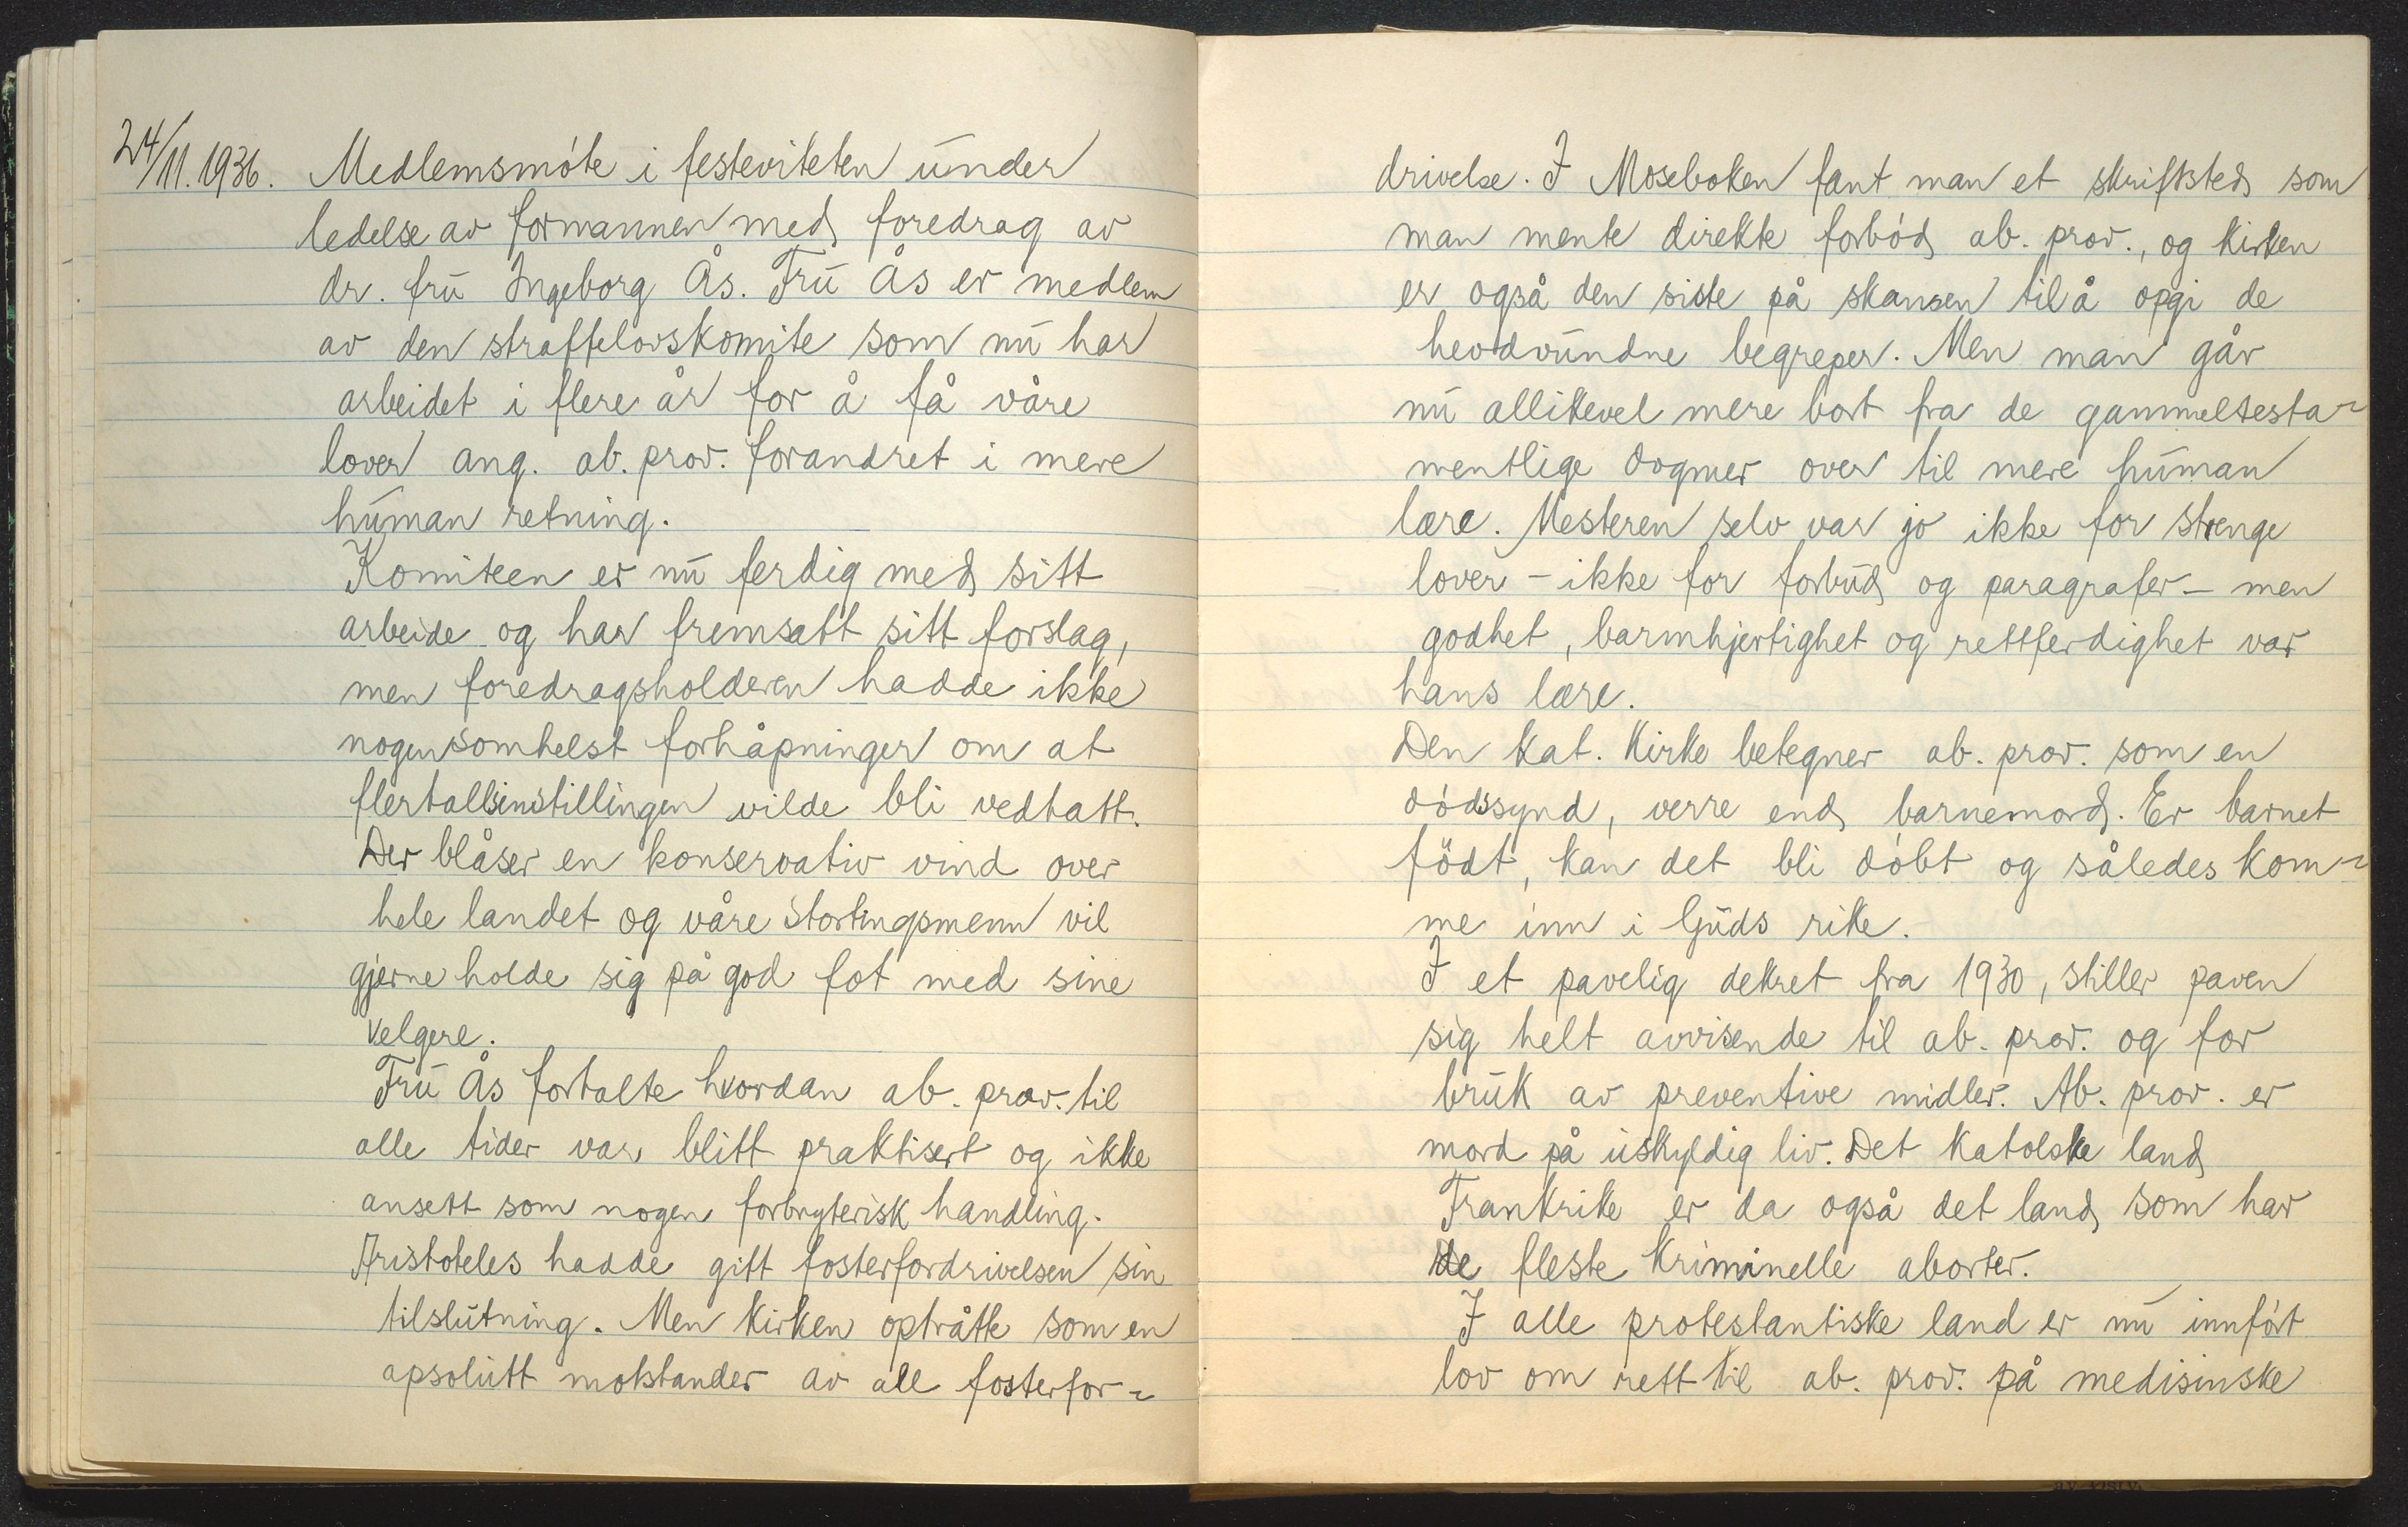 24/11.1936. Medlemsmóte i festeviteten under
ledelse av formannen med foredrag av
dr. fru Ingeborg Ås. Fru Ås er medlem
av den straffelovskomite som nu har
arbeidet i flere år for å få våre
lover ang. ab. prov. forandret i mere
human retning.
Komiteen er nu ferdig med sitt
arbeide og har fremsatt sitt forslag,
men foredragsholderen hadde ikke
nogensomhelst forhåpninger om at
flertallsinstillingen vilde bli vedtatt.
Der blåser en konservativ vind over
hele landet og våre stortingsmenn vil
gjerne holde sig på god fot med sine
velgere.
Fru Ås fortalte hvordan ab. prov. til
alle tider var blitt praktisert og ikke
ansett som nogen forbryterisk handling.
Aristoteles hadde gitt fosterfordrivelsen sin
tilslutning. Men kirken optråtte som en
apsolutt motstander av all fosterfor-
drivelse. I Moseboken fant man et skriftsted som
man mente direkte forbód ab. prov., og kirken
er også den siste på skansen til å opgi de
hevdvundne begreper. Men man går
nu allikevel mere bort fra de gammeltesta-
mentlige dogmer over til mere human
lære. Mesteren selv var jo ikke for strenge
lover - ikke for forbud og paragrafer - men
godhet, barmhjertighet og rettferdighet var
hans lære.
Den kat. Kirke betegner ab. prov. som en
dódssynd, verre end barnemord. Er barnet
födt, kan det bli dóbt og således kom-
me inn i Guds rike.
I et pavelig dekret fra 1930, stiller paven
sig helt avvisende til ab. prov. og for
bruk av preventive midler. Ab. prov. er
mord på uskyldig liv. Det katolske land
Frankrike er da også det land som har
de fleste kriminelle aborter.
I alle protestantiske land er nu innfórt
lov om rett til ab. prov. på medisinske